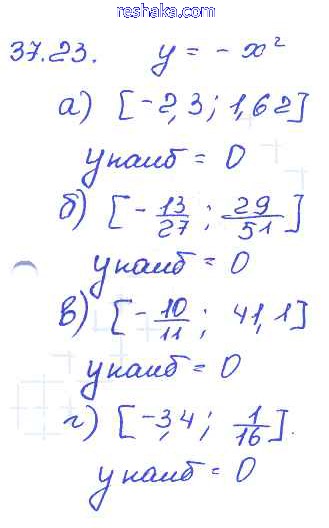 reshaka.com
37.23. y = -x²
а) [-2,3; 1,62]
yнаиб = 0
б) [-13/27; 29/51]
yнаиб = 0
в) [-10/11; 41,1]
yнаиб = 0
г) [-3,4; 1/16].
yнаиб = 0